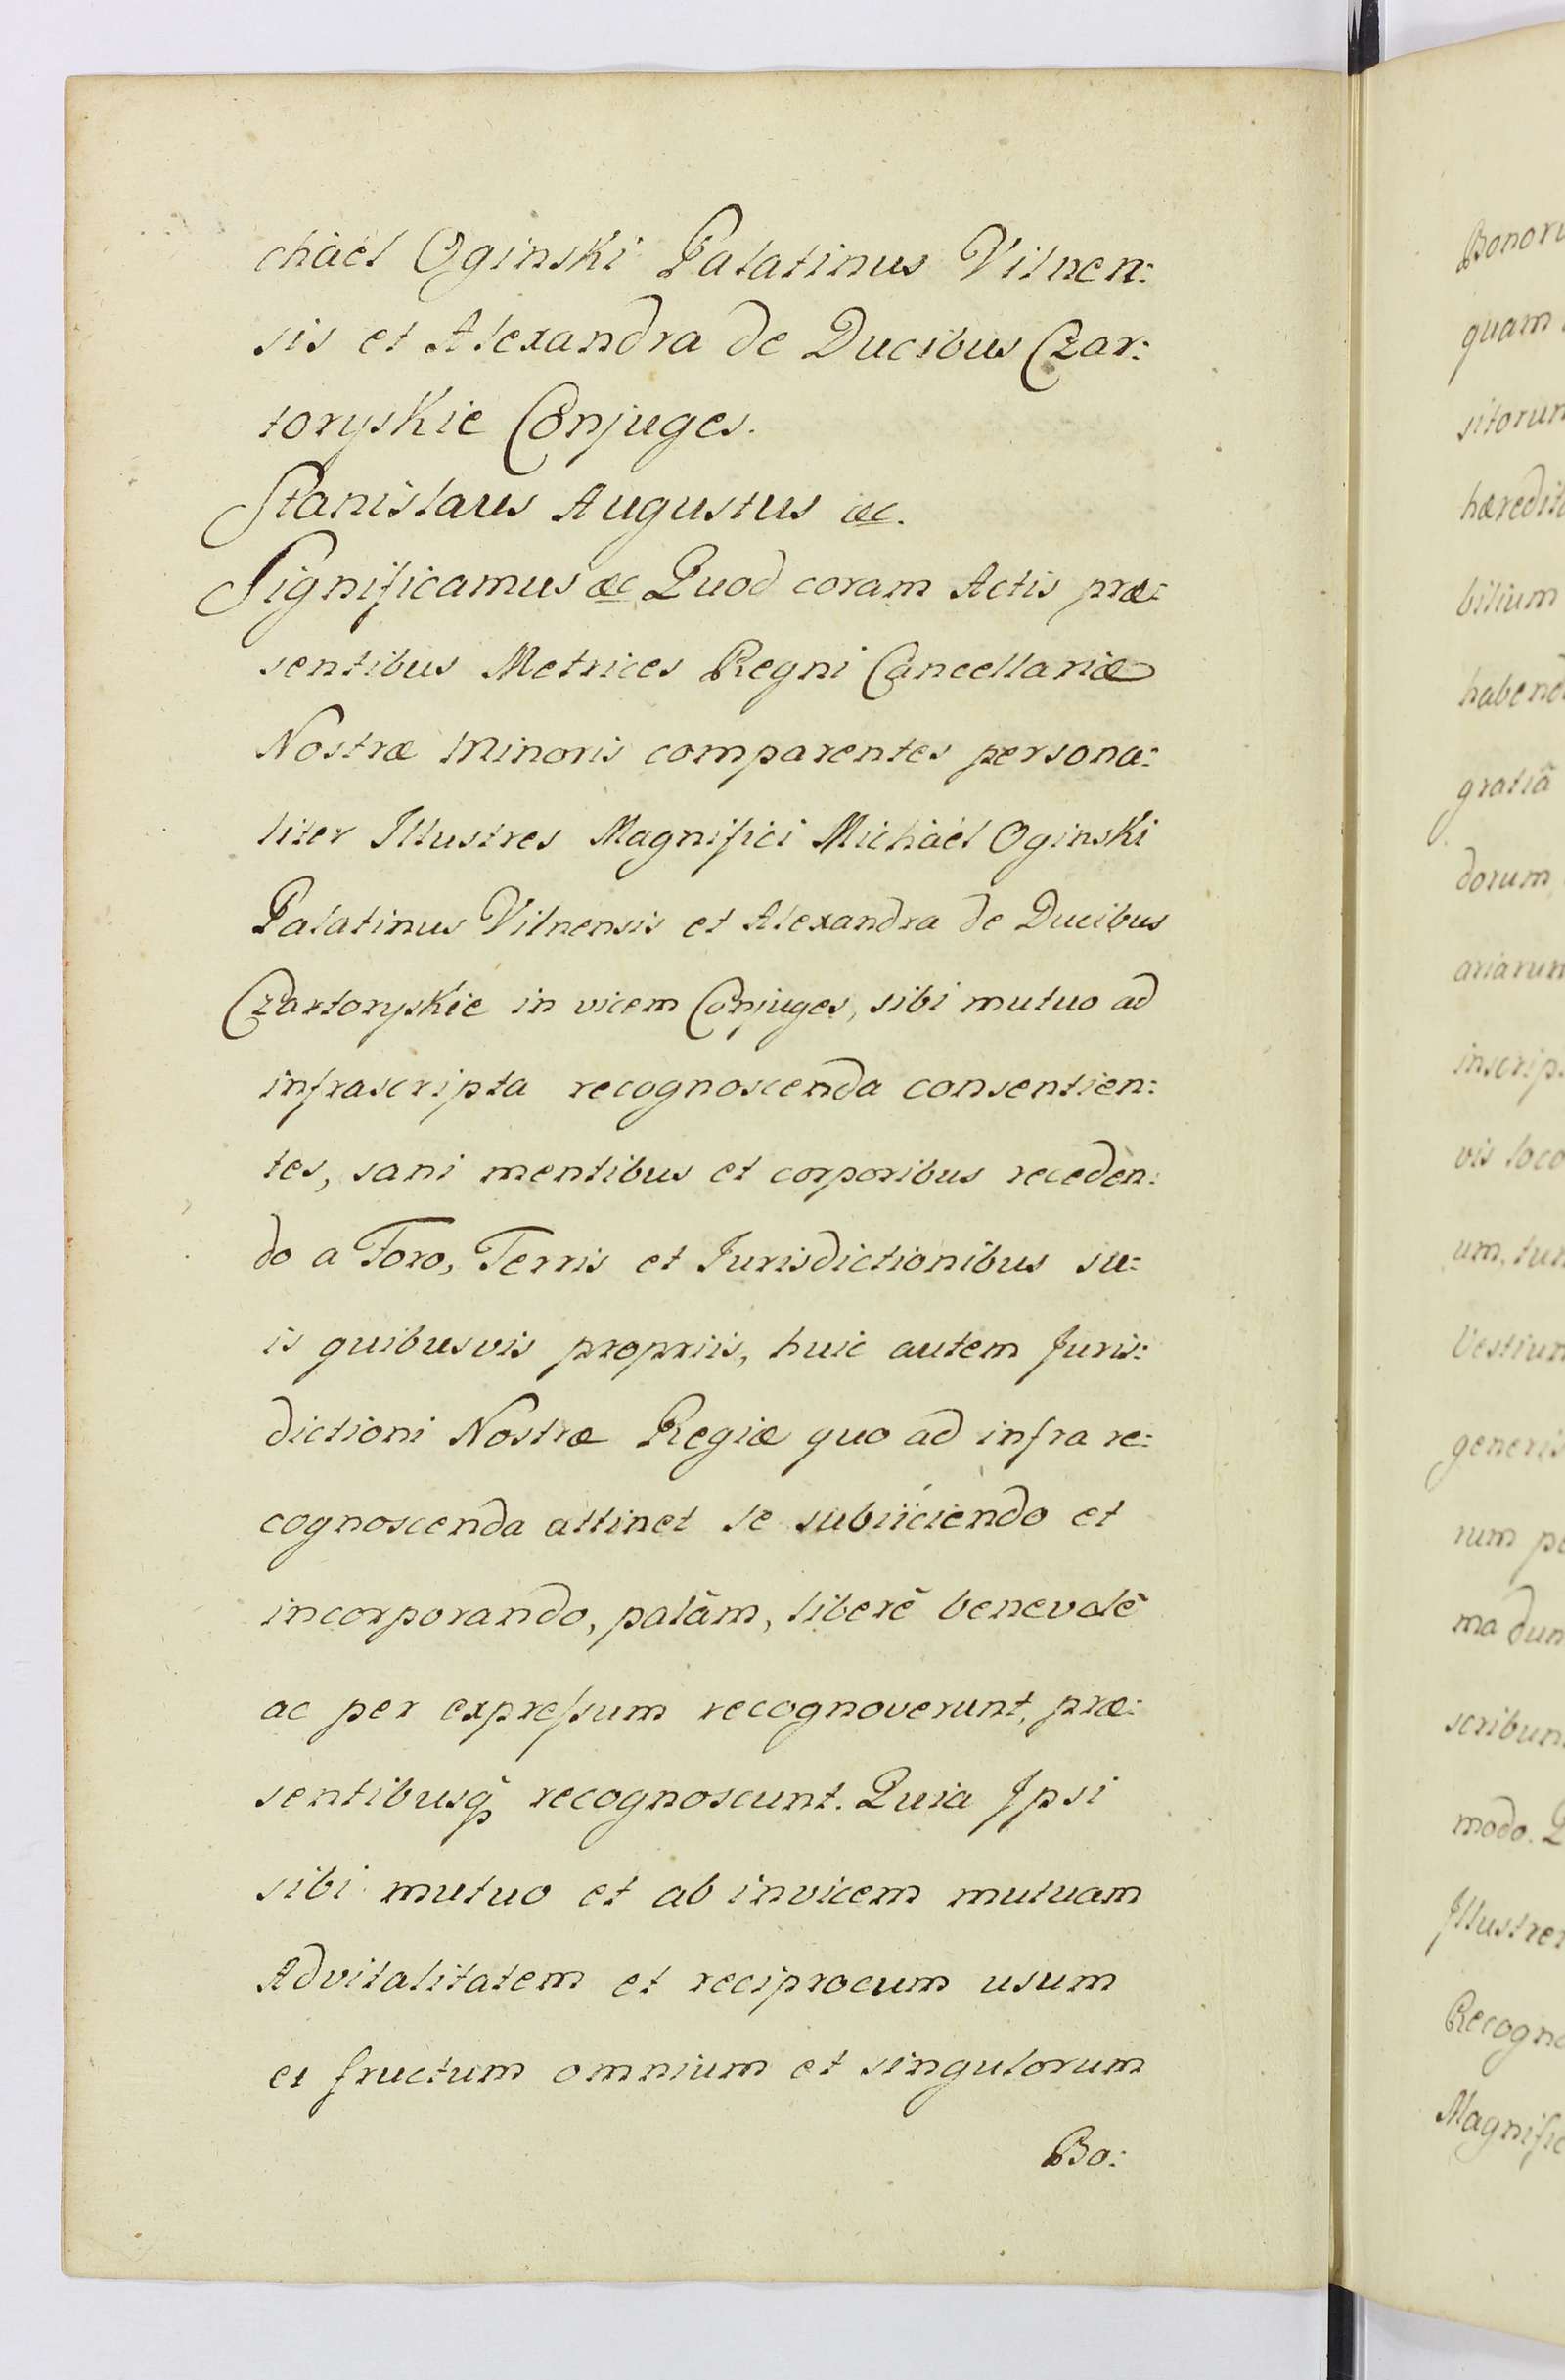 chäel Oginski Palatinus Vilnen:
sis et Alexandra de Ducibus Czar:
toryskie Conjuges.
Stanislaus Augustus &c.
Significamus &c Quod coram Actis præ:
sentibus Metrices Regni Cancellariæ
Nostræ Minoris comparentes persona:
liter Illustres Magnifici Michäel Oginski
Palatinus Vilnensis et Alexandra de Ducibus
Czartoryskie in vicem Conjuges, sibi mutuo ad
infrascripta recognoscenda consentien:
tes, sani mentibus et corporibus receden:
do a Foro, Terris et Jurisdictionibus su:
is quibusvis propriis, huic autem Juris:
dictioni Nostræ Regiæ quo ad infra re:
cognoscenda attinet se subiiciendo et
incorporando, palàm, liberè benevolè
ac per expressum recognoverunt, præ:
sentibusq̃ recognoscunt. Quia Ipsi
sibi mutuo et ab invicem mutuam
Advitalitatem et reciprocum usum
et fructum omnium et singulorum
Bo:
quam
bilium
gratiã
dorum
vis loco
um, tu
generis
rum
ma dun
modo.